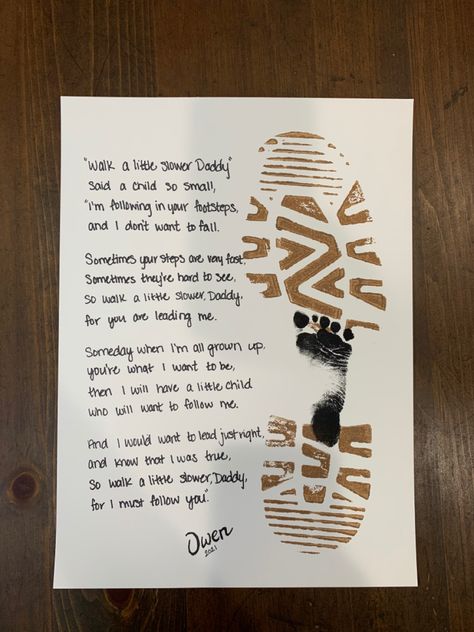 "Walk a little slower Daddy"
said a child so small,
"I'm following in your footsteps,
and I don't want to fall.
Sometimes your steps are very fast,
Sometimes they're hard to see,
so walk a little slower, Daddy,
for you are leading me.
Someday when I'm all grown up,
you're what I want to be,
then I will have a little child
who will want to follow me.
And I would want to lead just right,
and know that I was true,
so walk a little slower, Daddy,
for I must follow you."
Owen
2021